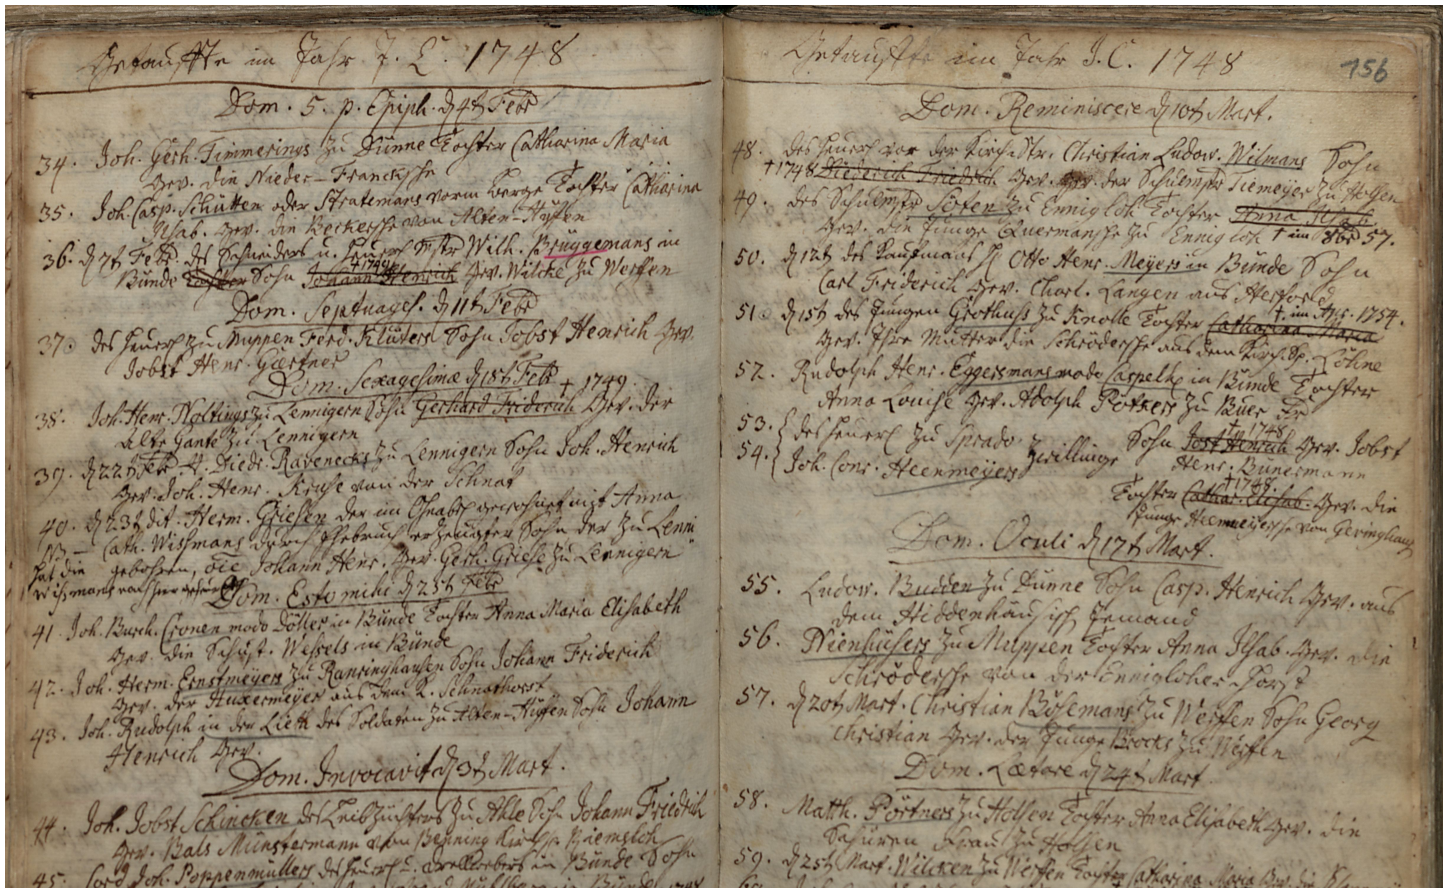 Getauffte im Jahr J. C. 1748
Dom. 5. p. Epiph. d 4t Febr
34. Joh. Gerh. Timmerings zu Dünne Tochter Catharina Maria
Gev. die Nieder-Franksche
35. Joh. Casp. Schütten oder Stratemans vorm Berge Tochter Catharina
Ilsab. Gev. die Beckersche von Alten-Hüffen
36. d 7t Febr. des Schneiders u. Heuerl Mstr Wilh. Brüggemans in
† 1749
Bünde Tochter Sohn Johann Henrich Gev. Wilcke zu Werffen
Dom. Septuages. d 11t Febr
37. des Heuerl zu Muppen Ferd. Klüters Sohn Jobst Henrich Gev.
Jobst Henr. Gærtner
Dom. Sexagesimæ d 18t Febr
† 1749.
38. Joh. Henr. Noltings zu Lennigern Sohn Gerhard Friderich Gev. der
alte Gante zu Lennigern
39. d 22t Febr Diedr. Ravenecks zu Lennigern Sohn Joh. Henrich
Gev. Joh. Henr. Kruse von der Schnat
40. d 23t dit. Herm. Griesen der im Osnabr. mit Anna
NB — Cath. Wissmans durch Ehebruch erzeugter Sohn der zu Lenni
hat die gebohren, Johann Henr. Gev. Gerh. Griese zu Lennigern
Wissmans nach hier
Dom. Esto mihi d 25t Febr
41. Joh. Burch. Cronen modo Döller in Bünde Tochter Anna Maria Elisabeth
Gev. die Schust. Wessels in Bünde
42. Joh. Herm. Ernstmeyers zu Ransringhausen Sohn Johann Friderich
Gev. der Huxermeyer aus dem K. Schnathorst
43. Joh. Rudolph in der Lieth des Soldaten zu Alten-Hüffen Sohn Johann
Henrich Gev.
Dom. Invocavit d 3t Mart.
44. Joh. Jobst Schincken des Leibzüchters zu Ahle Sohn Johann Friedrich
Gev. Bals Münstermann von Benning Kirchsp. Riemsloh
45. Joh. Poppenmüllers des Heuerl u. in Bünde Sohn
Getauffte im Jahr J. C. 1748
156
Dom. Reminiscere d 10t Mart.
48. des Heuerl vor der Kirchstr. Christian Ludow. Wilmans Sohn
† 1748 Diederich Friedrich Gev. der Schulmstr Tiemeyer zu Holsen
49. des Schulmstr Sieten zu Ennigloh Tochter Anna Ilsab.
Gev. die junge Quermansche zu Ennigloh † im 8br 57.
50. d 12t des Kaufmans H Otto Henr. Meyers in Bünde Sohn
Carl Friderich Gev. Charl. Langen aus Herford
† im Apr. 1754.
51. d 15t des jungen Grothuss zu Knolle Tochter Catharina Maria
Gev. Ihre Mutter die Schrödersche aus dem Kirchsp. Löhne
52. Rudolph Henr. Eggersmans modo in Bünde Tochter
Anna Louise Gev. Adolph Pötkers zu Buer Fr
† 1748
53. des Heuerl zu Sprado Zwillinge Sohn Jost Henrich Gev. Jobst
54. Joh. Conr. Heenmeyers Henr. Bünermann
† 1748
Tochter Cathar. Elisab. Gev. die
junge Heenmeyersche von Geringhaus
Dom. Oculi d 17t Mart.
55. Ludow. Budden zu Dünne Sohn Casp. Henrich Gev. aus
dem Hiddenhausisch Jemand
56. Nienhüsers zu Muppen Tochter Anna Ilsab. Gev. die
Schrödersche von der Enniglohe Horst
57. d 20t Mart. Christian Bösemans zu Werffen Sohn Georg
Christian Gev. der junge Brocks zu Werffen
Dom. Lætare d 24t Mart.
58. Matth. Pörtners zu Holsen Tochter Anna Elisabeth Gev. die
Schuren Frau zu Holsen
59. d 25t Mart. Wilcken zu Werffen Tochter Catharina Maria Gev.